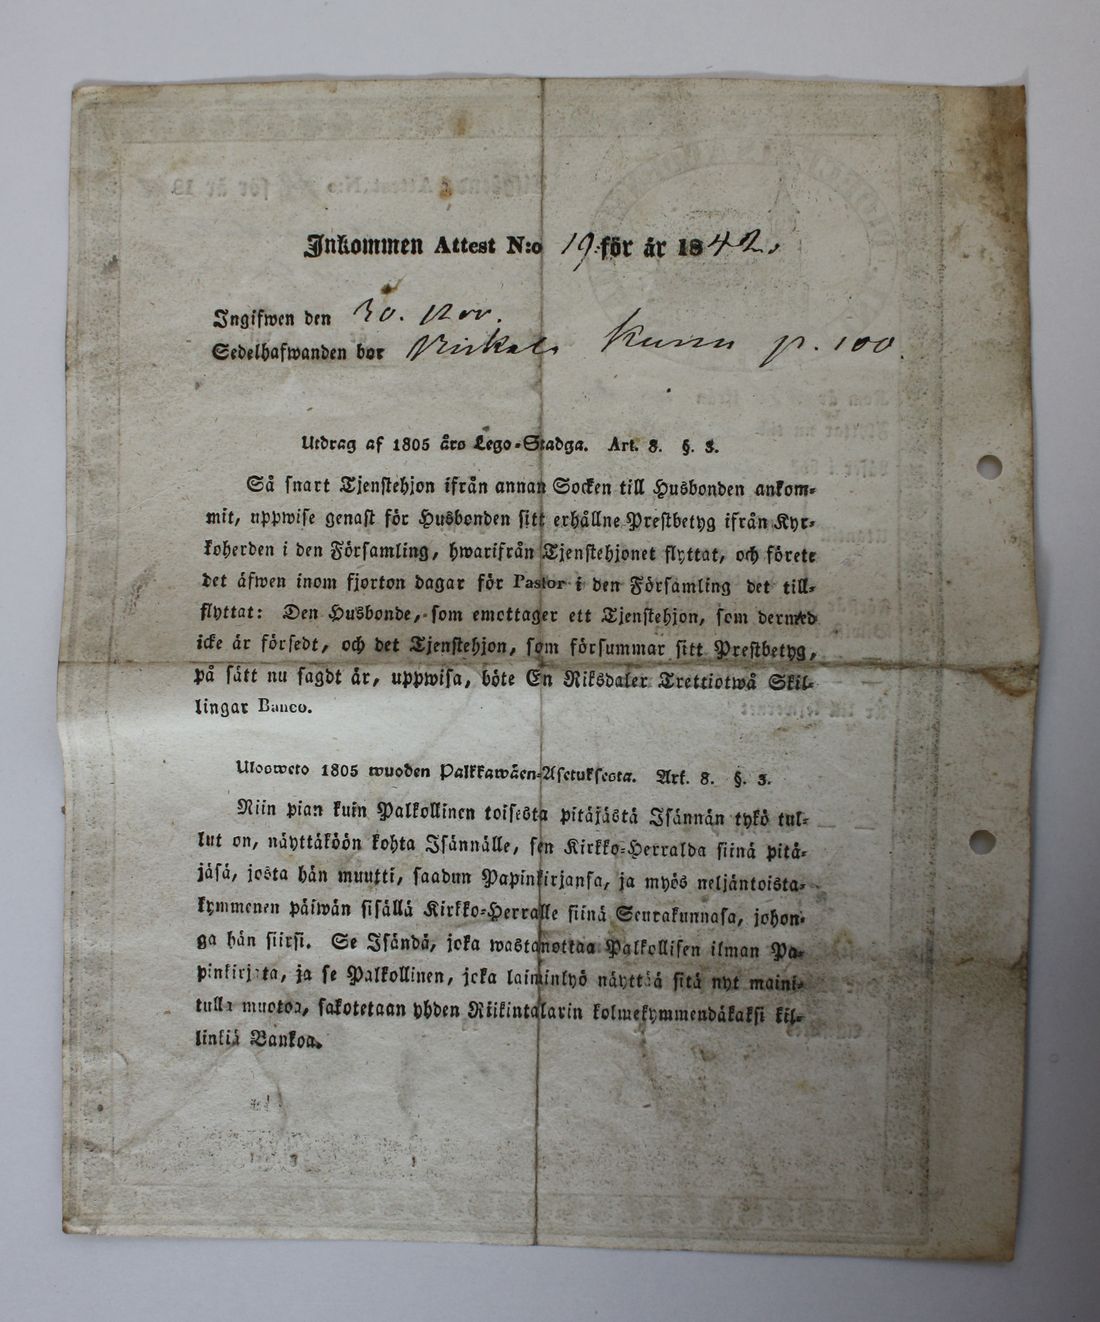 Inkommen Attest N:o 19. för år 1842.
Ingifwen den 30. Nov.
Sedelhafwanden bor p. 100.
Utdrag af 1805 års Lego-Stadga. Art. 8. §. 3.
Så snart Tjenstehjon ifrån annan Socken till Husbonden ankom-
mit, uppwise genast för Husbonden sitt erhållne Prestbetyg ifrån Kyr-
koherden i den Församling, hwarifrån Tjenstehjonet flyttat, och förete
det äfwen inom fjorton dagar för Pastor i den Församling det till-
flyttat: Den Husbonde, som emottager ett Tjenstehjon, som dermed
icke är försedt, och det Tjenstehjon, som försummar sitt Prestbetyg,
på sätt nu sagdt är, uppwisa, böte En Riksdaler Trettiotwå Skil-
lingar Banco.
Ulosweto 1805 wuoden Palkkawäen-Asetuksesta. Art. 8. §. 3.
Niin pian kuin Palkollinen toisesta pitäjästä Isännän tykö tul-
lut on, näyttäköön kohta Isännälle, sen Kirkko-Herralda siinä pitä-
jäsä, josta hän muutti, saadun Papinkirjansa, ja myös neljäntoista-
kymmenen päiwän sisällä Kirkko-Herralle siinä Seurakunnasa, johon-
ga hän siirsi. Se Isändä, joka wastanottaa Palkollisen ilman Pa-
pinkirjata, ja se Palkollinen, joka laiminlyö näyttää sitä nyt maini-
tulla muotoa, sakotetaan yhden Riikintalarin kolmekymmendäkaksi kil-
linkiä Bankoa.